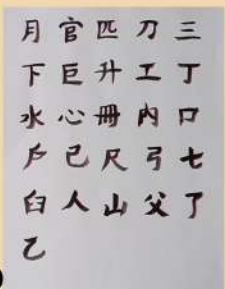 月官匹刀三
下巨升工丁
水心冊内口
戶己尺弓七
臼人山父了
乙